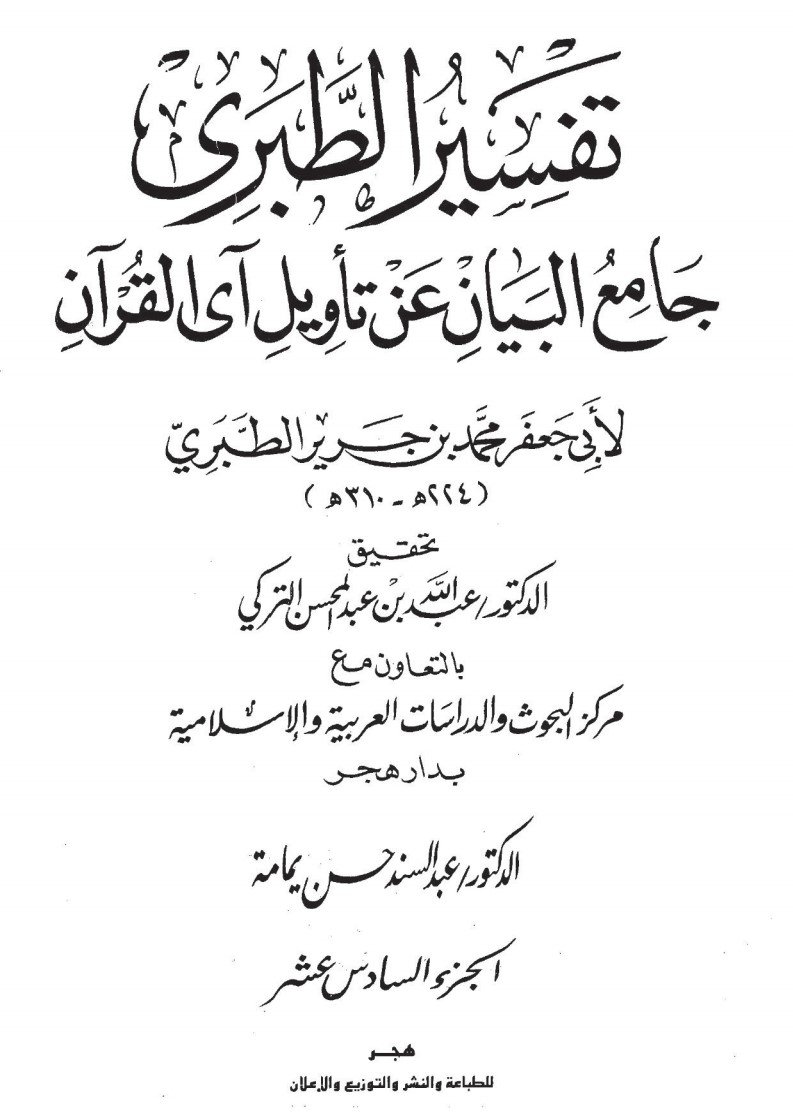 تفسير الطبرى
جامع البيان عن تأويل آى القرآن
لأبي جعفر محمد بن جرير الطبري
(٢٢٤هـ - ٣١٠هـ)
تحقيق
الدكتور/عبد الله بن عبد المحسن التركي
بالتعاون مع
مركز البحوث والدراسات العربية والإسلامية
بدار هجر
الدكتور/عبد السند حسن يمامة
الجزء السادس عشر
هجر
للطباعة والنشر والتوزيع والإعلان